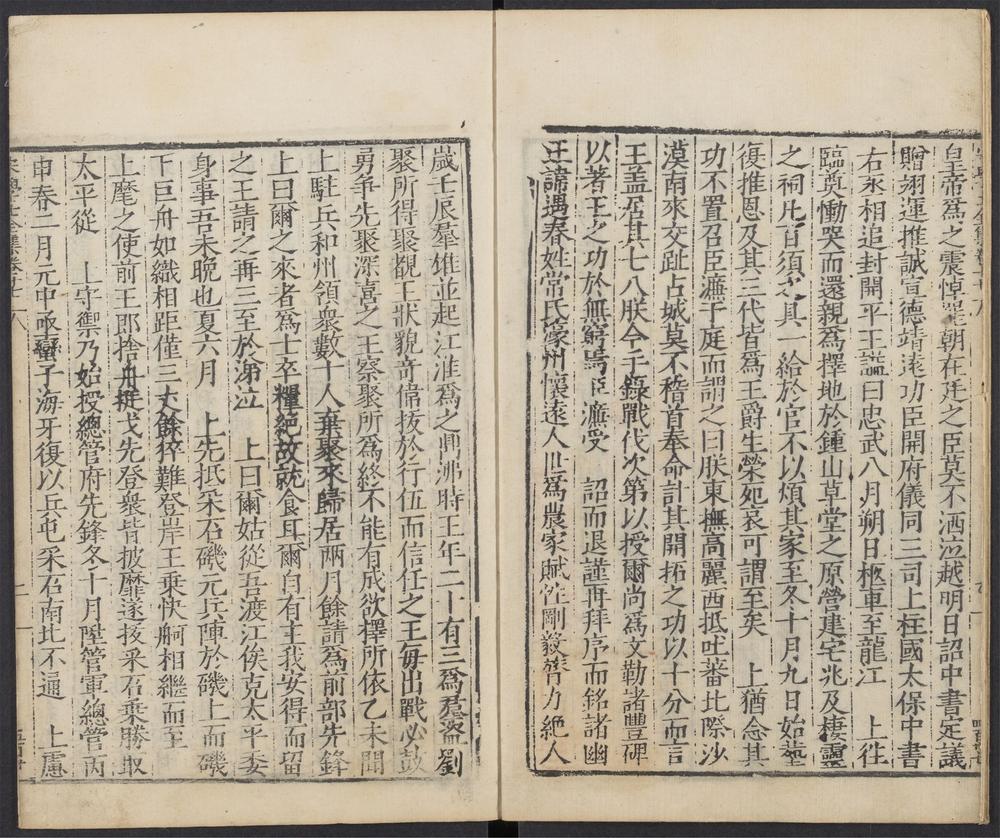 皇帝爲之震悼罷朝在廷之臣莫不洒泣越明日詔中書定議
贈翊運推誠宣德靖遠功臣開府儀同三司上柱國太保中書
右丞相追封開平王謚曰忠武八月朔日柩車至龍江　上徃
臨奠慟哭而還親爲擇地於鍾山草堂之原營建宅兆及棲靈
之祠凡百須之具一給於官不以煩其家至冬十月九日始塟
復推恩及其三代皆爲王爵生榮死哀可謂至矣　上猶念其
功不置召臣濂于庭而謂之曰朕東撫高麗西抵吐蕃比際沙
漠南來交趾占城莫不稽首奉命計其開拓之功以十分而言
王盖居其七八朕今手錄戰伐次第以授爾尚爲文勒諸豐碑
以著王之功於無窮焉臣濂受　詔而退謹再拜序而銘諸幽
王諱遇春姓常氏濠州懷遠人世爲農家賦性剛毅膂力絕人
歲壬辰羣雄並起江淮爲之鼎沸時王年二十有三爲羣盜劉
聚所得聚觀王狀貌竒偉拔於行伍而信任之王每出戰必鼓
勇爭先聚深喜之王察聚所爲終不能有成欲擇所依乙未聞
上駐兵和州領衆數十人棄聚來歸居兩月餘請爲前部先鋒
上曰爾之來者爲士卒糧絕故就食耳爾自有主我安得而留
之王請之再三至於涕泣　上曰爾姑從吾渡江俟克太平委
身事吾未晩也夏六月　上先抵采石磯元兵陣於磯上而磯
下巨舟如織相距僅三丈餘猝難登岸王乗快舸相繼而至
上麾之使前王即捨舟挺戈先登衆皆披靡遂拔采石乗勝取
太平從　上守禦乃始授總管府先鋒冬十月陞管軍總管丙
申春二月元中丞蠻子海牙復以兵屯采石南北不通　上慮